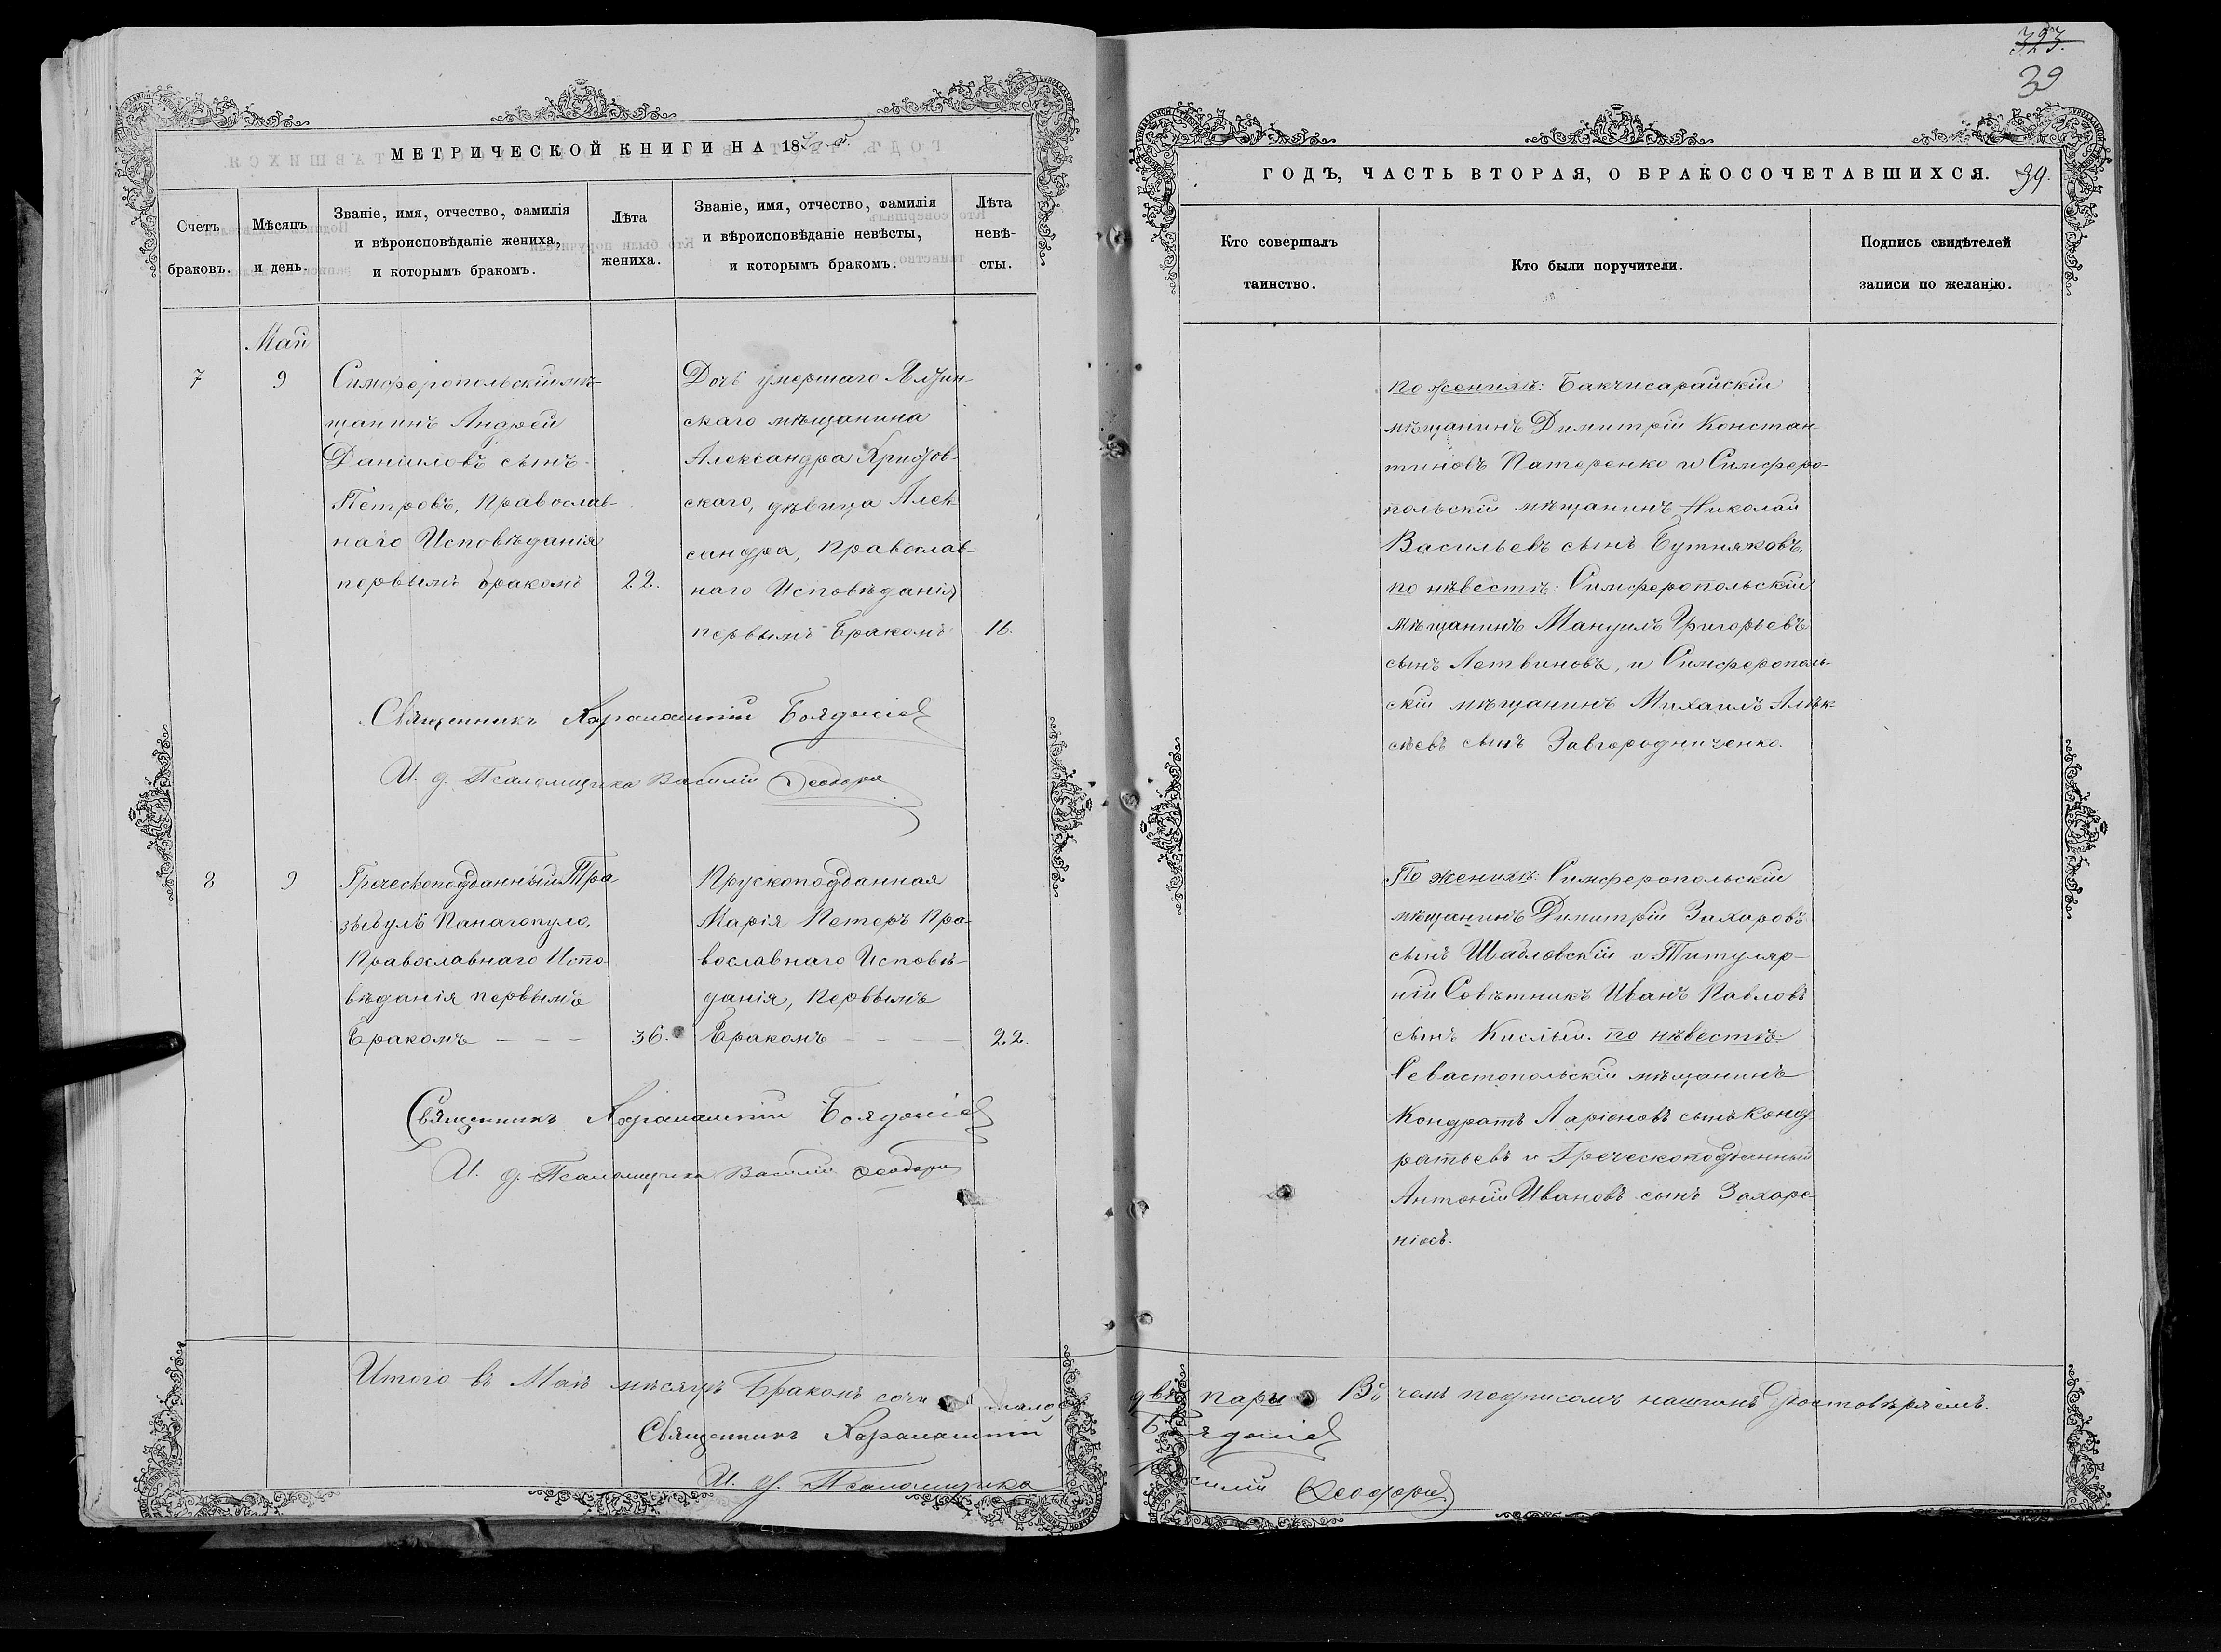 323.
39
МЕТРИЧЕСКОЙ КНИГИ НА 18
ГОДЪ, ЧАСТЬ ВТОРАЯ, О БРАКОСОЧЕТАВШИХСЯ.
39.
Счетъ
браковъ.
Мѣсяцъ
и день.
Званіе, имя, отчество, фамилія
и вѣроисповѣданіе жениха,
и которымъ бракомъ.
Лѣта
жениха.
Званіе, имя, отчество, фамилія
и вѣроисповѣданіе невѣсты,
и которымъ бракомъ.
Лѣта
невѣ-
сты.
Кто совершалъ
таинство.
Кто были поручители.
Подпись свидѣтелей
записи по желанію.
7
Май
9
Симферопольскій мѣ-
щанинъ Андрей
Даніиловъ сынъ
Петровъ, Православ-
наго Исповѣданія
первымъ бракомъ
22.
Дочь умершаго Ялтин-
скаго мѣщанина
Александра
скаго, дѣвица Алек-
сандра, Православ-
наго Исповѣданія
первымъ Бракомъ
16.
по женихѣ: Бакчисарайскій
мѣщанинъ Димитрій Констан
тиновъ Патеренко и Симферо-
польскій мѣщанинъ Николай
Васильевъ сынъ Бутняковъ,
по нѣвестѣ: Симферопольскій
мѣщанинъ Мануилъ Григорьевъ
сынъ Летвиновъ, и Симферополь-
скій мѣщанинъ Михаилъ Алѣк-
сѣевъ сынъ Завгородниченко.
Священникъ Харалампій
И. д. Псаломщика Василій Ѳеодори
8
9
Греческоподданный Тра
зыбулъ Панагопуло,
Православнаго Испо-
вѣданія первымъ
Бракомъ - - -
36.
Прускоподданная
Марія Петеръ Пра-
вославнаго Исповѣ-
данія, Первымъ
Бракомъ - - - -
22.
По женихѣ: Симферопольскій
мѣщанинъ Димитрій Захаровъ
сынъ Шабловскій и Титуляр-
ній Совѣтникъ Иванъ Павловъ
сынъ Кислый. по нѣвестѣ:
Севастопольскій мѣщанинъ
Кондратъ Ларіоновъ сынъ Конд
ратьевъ и Греческоподданный
Антоній Ивановъ сынъ Захаре-
ніосъ.
Священникъ Харалампій
И. д. Псаломщика Василій Ѳеодори
Итого въ Маѣ мѣсяцѣ Бракомъ двѣ пары Въ чемъ подписомъ нашимъ Удостовѣряемъ.
Священникъ Харалампій
И. д. Псаломщика Василій Ѳеодори